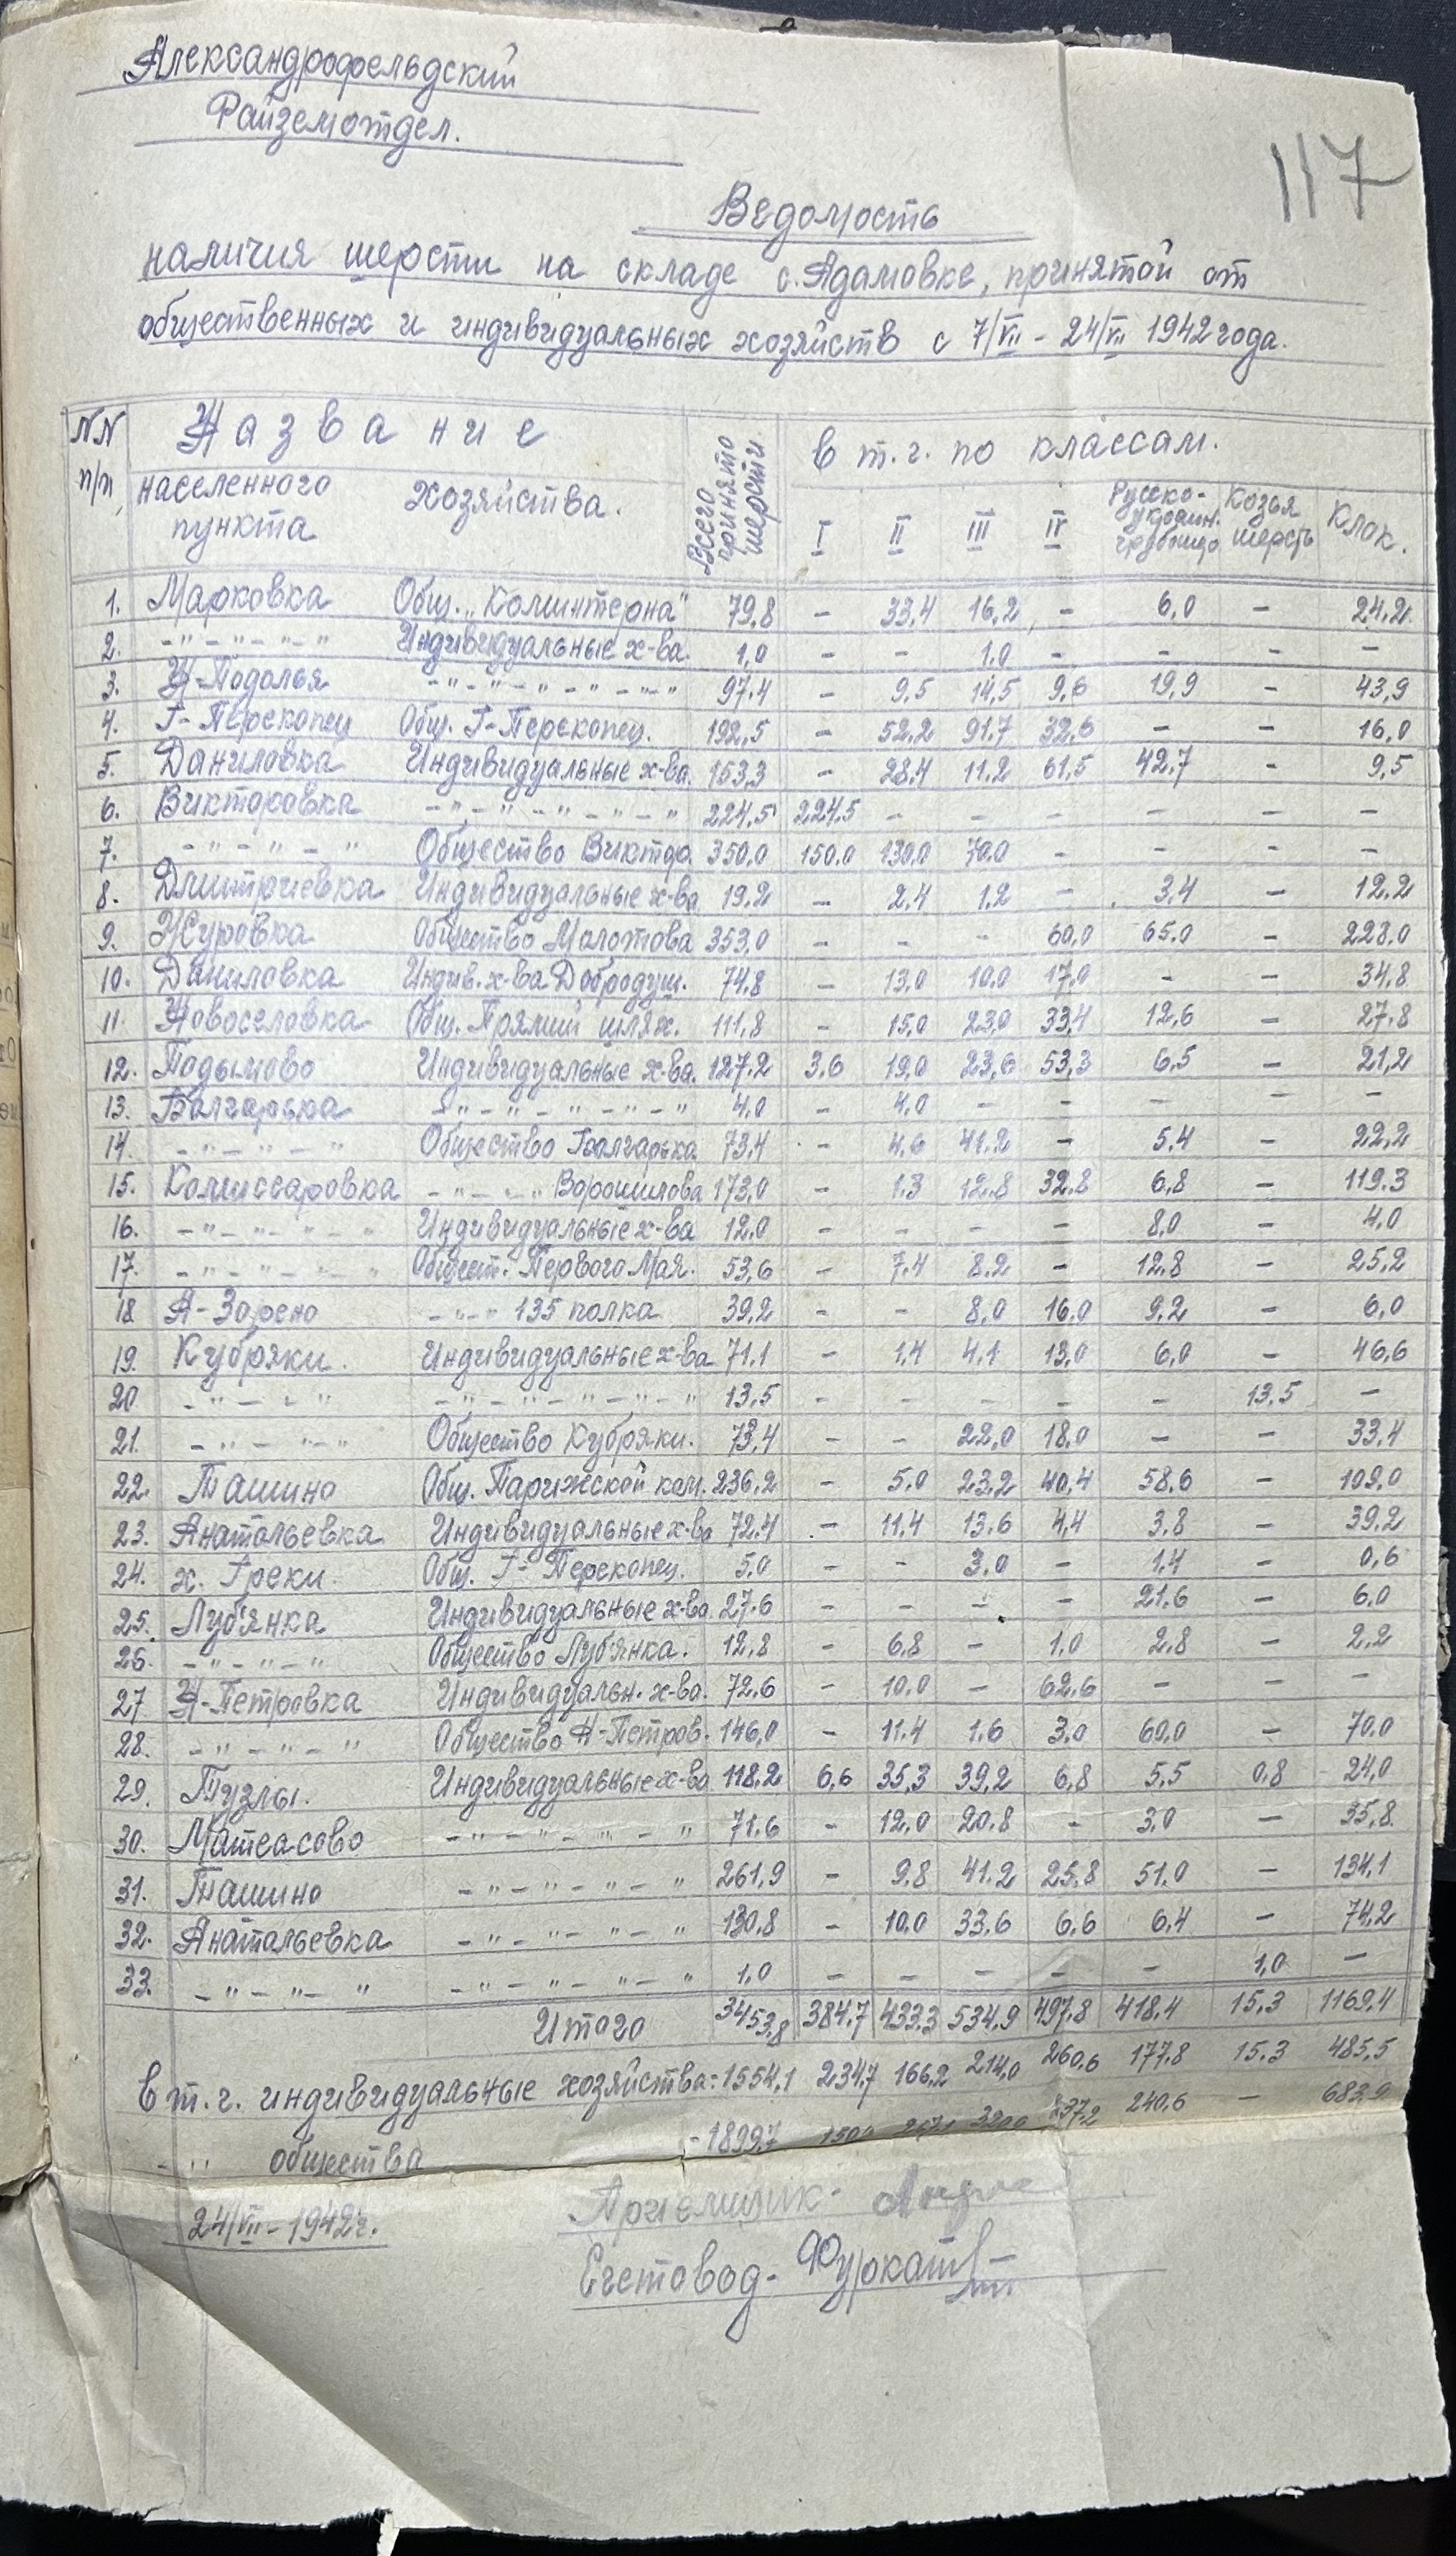 Александрофельдский
Райземотдел.
117
Ведомость
наличия шерсти на складе с. Адамовке, принятой от
общественных и индивидуальных хозяйств с 7/VII - 24/VII 1942 года.
NN п/п Название Всего принято шерсти в т.ч. по классам.
населенного пункта хозяйства. I II III IV Русско-украин. грубошер Козья шерсть Клок.
1. Марковка Общ. „Коминтерна" 79,8 - 33,4 16,2 - 6,0 - 24,2
2. -"-"-"-" Индивидуальные х-ва. 1,0 - - 1.0 - - - -
3. Н-Подолья -"-"-"-"-"-" 97.4 - 9,5 14,5 9,6 19,9 - 43,9
4. Г-Перекопец Общ. Г-Перекопец. 192,5 - 52,2 91.7 32,6 - - 16,0
5. Даниловка Индивидуальные х-ва. 153,3 - 28.4 11.2 61,5 42,7 - 9,5
6. Викторовка -"-"-"-"-" 224,5 224,5 - - - - - -
7. -"-"-" Общество Виктор. 350,0 150.0 130,0 70,0 - - - -
8. Дмитриевка Индивидуальные х-ва 19.2 - 2.4 1,2 - 3,4 - 12,2
9. Журовка Общество Молотова 353,0 - - - 60,0 65.0 - 228.0
10. Даниловка Индив. х-ва Добродуш. 74,8 - 13,0 10,0 17,0 - - 34,8
11. Новоселовка Общ. Прямий шлях. 111,8 - 15,0 23,0 33,4 12,6 - 27.8
12. Подымово Индивидуальные х-ва. 127.2 3.6 19,0 23,6 53,3 6,5 - 21,2
13. Балгарька -"-"-"-"-" 4,0 - 4,0 - - - - -
14. -"-"-"-" Общество Балгарька 73,4 - 4,6 41.2 - 5,4 - 22,2
15. Комиссаровка -"-"-" Ворошилова 173,0 - 1.3 12,8 32,8 6,8 - 119.3
16. -"-"-"-" Индивидуальные х-ва 12,0 - - - - 8,0 - 4,0
17. -"-"-"-" Общест. Первого Мая. 53,6 - 7.4 8.2 - 12,8 - 25,2
18 А-Зорено -"-" 135 полка 39,2 - - 8,0 16,0 9,2 - 6,0
19. Кубряки. Индивидуальные х-ва 71,1 - 1,4 4,1 13,0 6,0 - 46,6
20 -"-"-" -"-"-"-"-" 13,5 - - - - - 13,5 -
21. -"-"-" Общество Кубряки. 73,4 - - 22,0 18.0 - - 33,4
22. Ташино Общ. Парижской ком. 236,2 - 5.0 23,2 40,4 58,6 - 109.0
23. Анатольевка Индивидуальные х-ва 72.4 - 11,4 13.6 4,4 3.8 - 39,2
24. х. Греки. Общ. Г-Перекопец. 5,0 - - 3,0 - 1,4 - 0,6
25. Луб'янка Индивидуальные х-ва. 27.6 - - - - 21,6 - 6,0
26. -"-"-" Общество Луб'янка. 12,8 - 6,8 - 1,0 2,8 - 2,2
27 Н-Петровка Индивидуальн. х-ва. 72,6 - 10.0 - 62,6 - - -
28. -"-"-" Общество Н-Петров. 146,0 - 11.4 1.6 3,0 60,0 - 70,0
29. Тузлы. Индивидуальные х-ва 118,2 6,6 35,3 39,2 6,8 5,5 0,8 24,0
30. Матеасово -"-"-"-"-" 71.6 - 12,0 20.8 - 3,0 - 35,8
31. Ташино -"-"-"-"-" 261,9 - 9,8 41.2 25,8 51,0 - 134,1
32. Анатольевка -"-"-"-"-" 130.8 - 10,0 33.6 6,6 6,4 - 74,2
33. -"-"-" -"-"-"-"-" 1,0 - - - - - 1,0 -
Итого 3453,8 384,7 433.3 534,9 497,8 418,4 15,3 1169,4
в т.ч. индивидуальные хозяйства: 1554,1 234,7 166,2 214,0 260,6 177,8 15.3 485,5
-"- общества - 1899,7 237,2 240,6 - 683,9
24/VII-1942 г. Приемщик -
Счетовод -